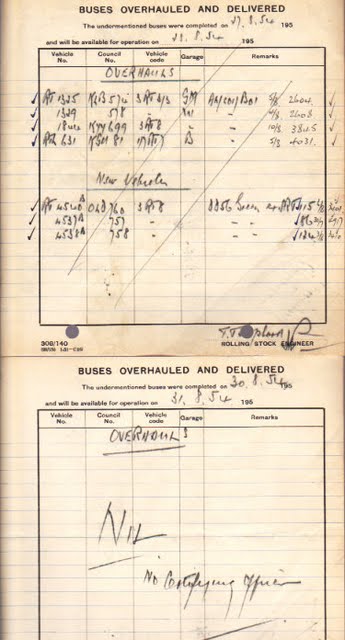 BUSES OVERHAULED AND DELIVERED
The undermentioned buses were completed on 27.8.54 195
and will be available for operation on 28.8.54 195
Vehicle No. Council No. Vehicle code Garage Remarks
OVERHAULS
RT 1325 KLB 572 3RT3/3 GM 5/8 2604
1329 578 4/8 2603
1844 KYY 699 3RT8 " 10/8 3845
RTL 631 5/8 4031
New Vehicles
RT 4540A OLD 760 3RT8 8856 Green
4537A 757 " " "
4538A 758 " " "
ROLLING STOCK ENGINEER
308/140
BUSES OVERHAULED AND DELIVERED
The undermentioned buses were completed on 30.8.54 195
and will be available for operation on 31.8.54 195
Vehicle No. Council No. Vehicle code Garage Remarks
OVERHAULS
NIL
No Certifying Officer